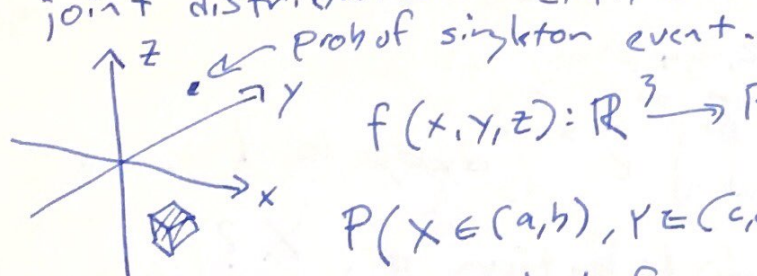 joint
z
prob of singleton event.
y
f(x,y,z): ℝ³ →
x
P(X ∈ (a,b), Y ∈ (c,